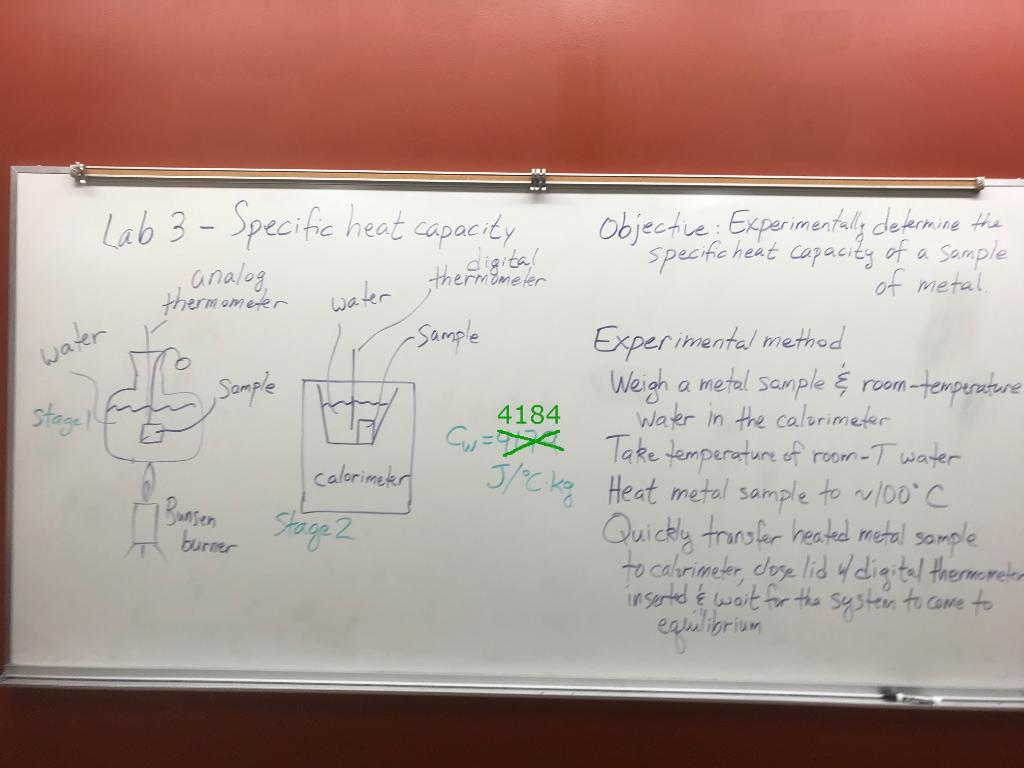 Lab 3 - Specific heat capacity
analog
thermometer
water
Sample
Stage 1
Bunsen
burner
water
digital
thermometer
Sample
calorimeter
Stage 2
4184
Cw =
J/°C·kg
Objective: Experimentally determine the
specific heat capacity of a sample
of metal.
Experimental method
Weigh a metal sample & room-temperature
water in the calorimeter
Take temperature of room-T water
Heat metal sample to ~100°C
Quickly transfer heated metal sample
to calorimeter, close lid w/ digital thermometer
inserted & wait for the system to come to
equilibrium